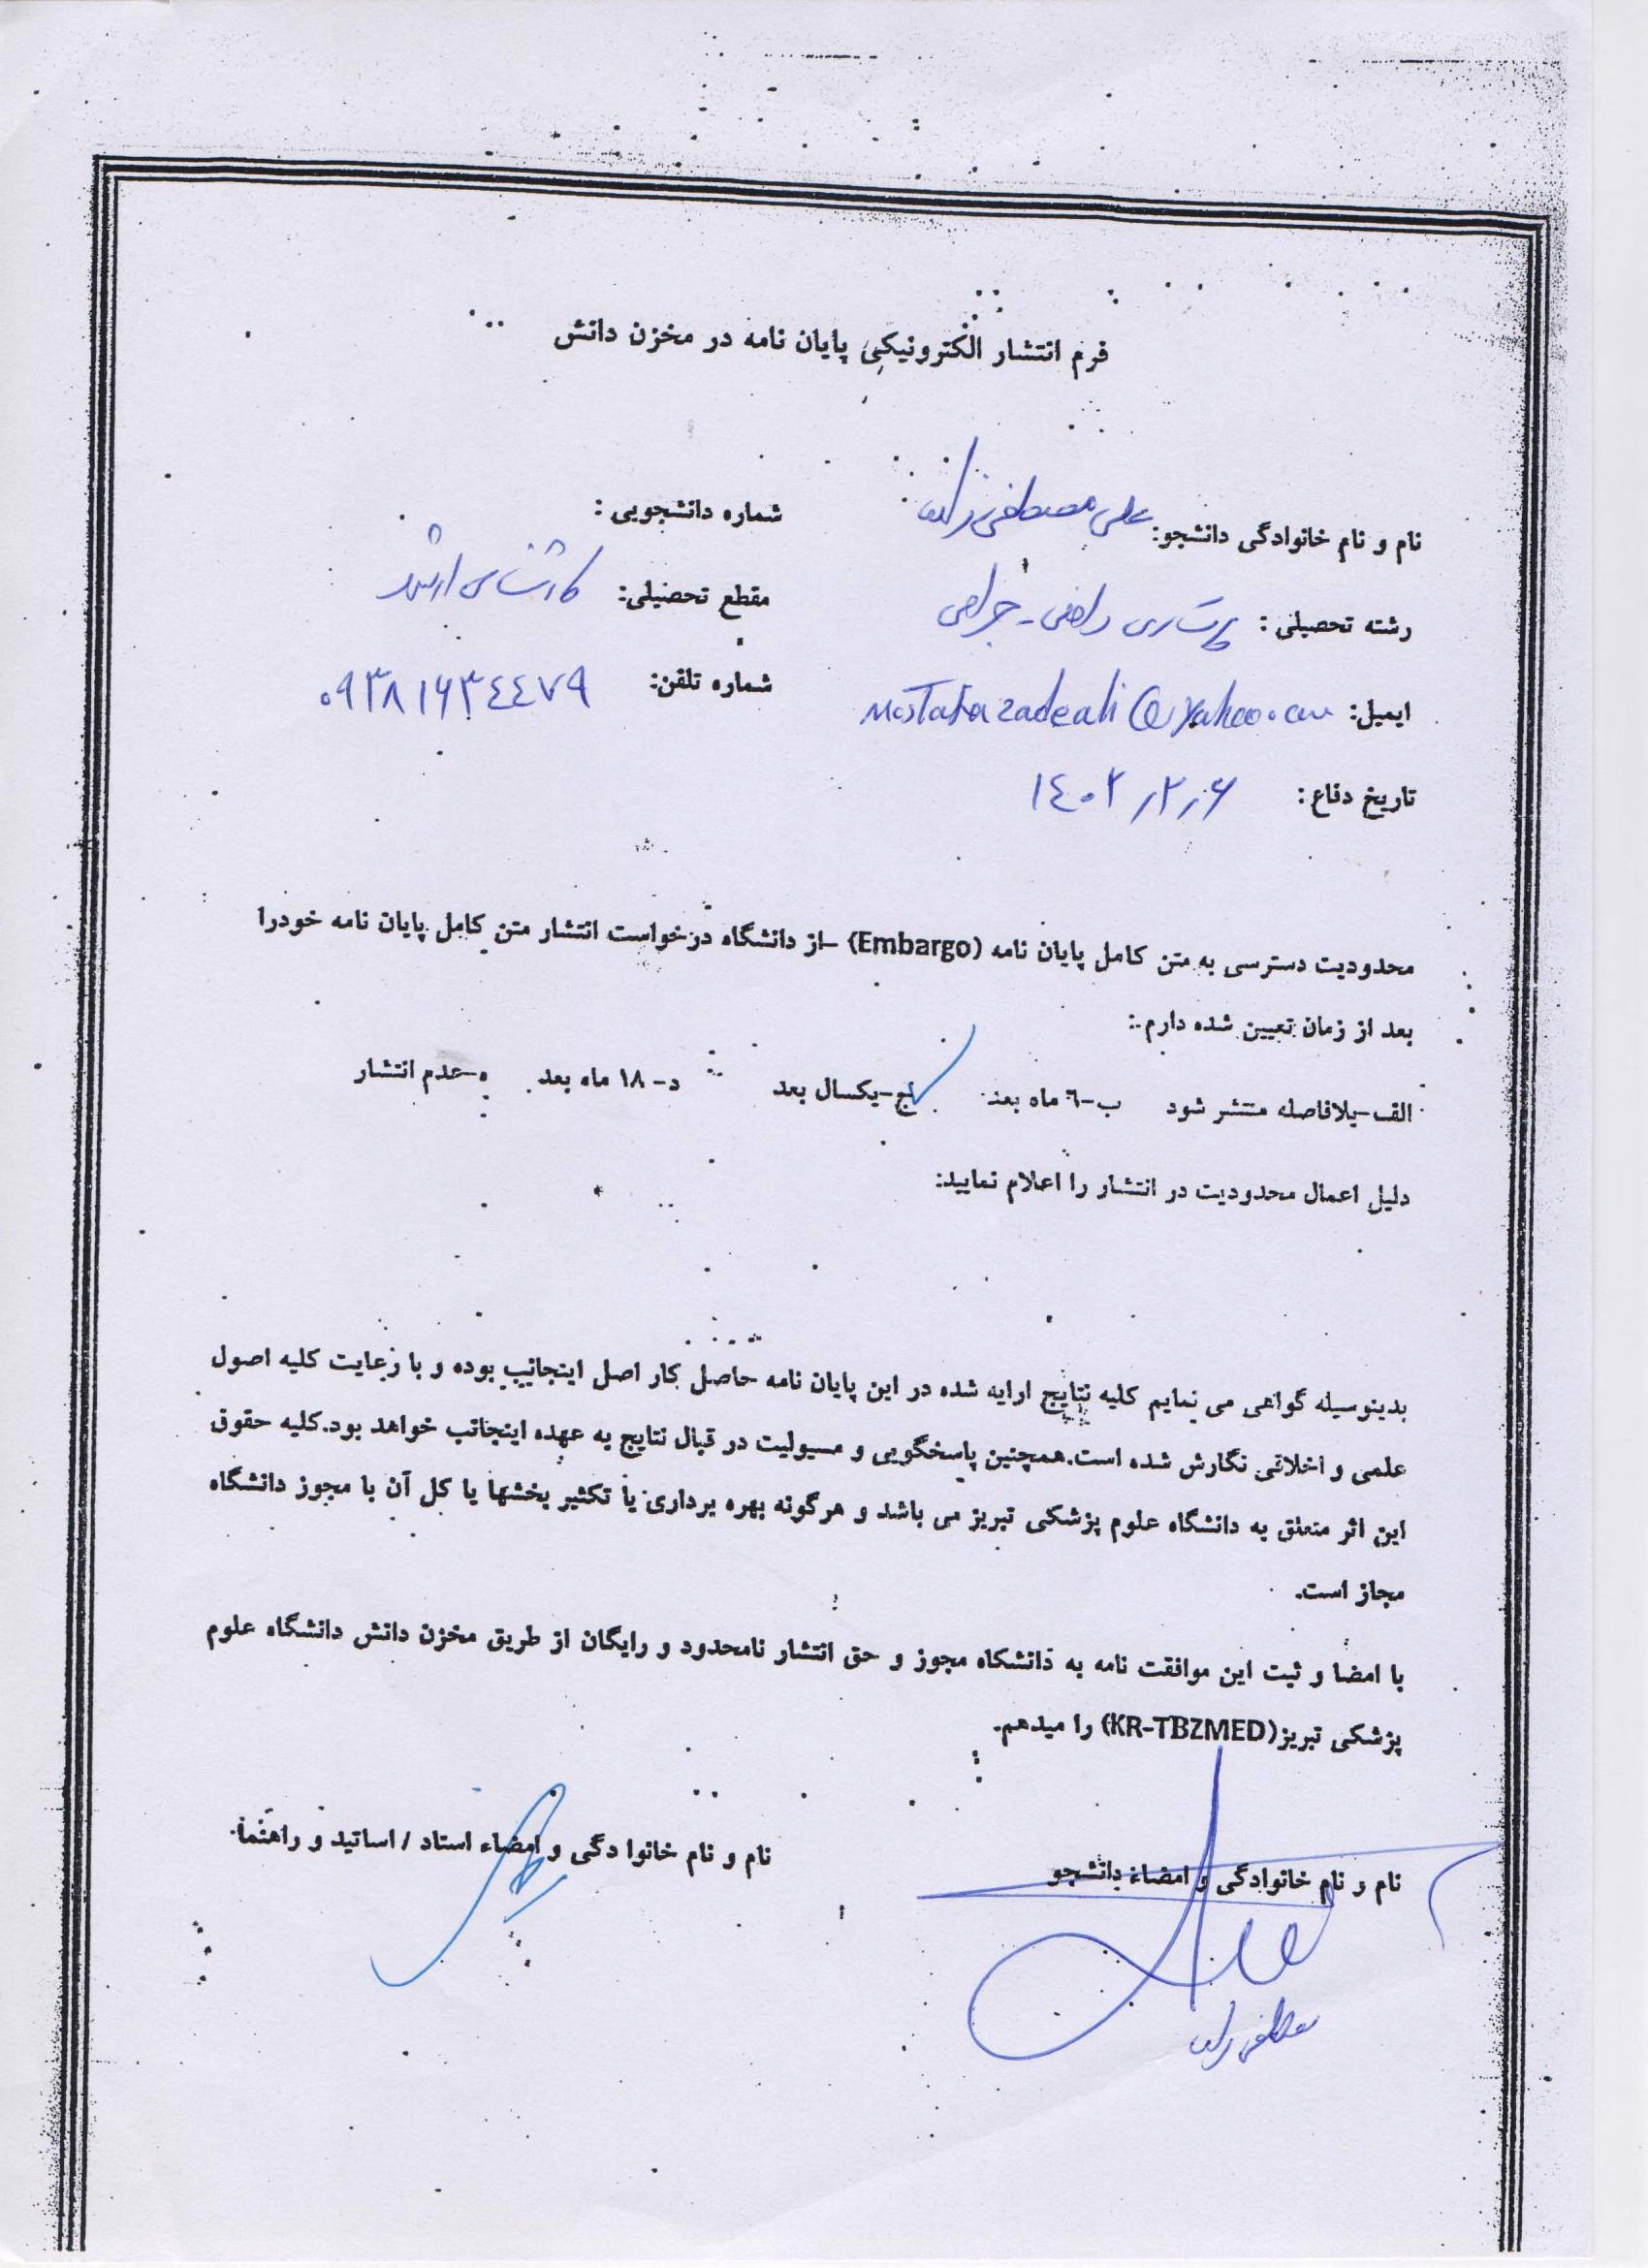 فرم انتشار الکترونیکی پایان نامه در مخزن دانش
نام و نام خانوادگی دانشجو: علی مصطفی زاده شماره دانشجویی :
رشته تحصیلی : پرستاری داخلی - جراحی مقطع تحصیلی: کارشناسی ارشد
ایمیل: mostafazadeali@yahoo.com شماره تلفن: ۰۹۳۸۱۶۳٤٤۷۹
تاریخ دفاع : ۱٤۰۲,۲,۶
محدودیت دسترسی به متن کامل پایان نامه (Embargo) –از دانشگاه درخواست انتشار متن کامل پایان نامه خودرا
بعد از زمان تعیین شده دارم :
الف-بلافاصله منتشر شود ب-٦ ماه بعد ج-یکسال بعد د- ۱۸ ماه بعد ه-عدم انتشار
دلیل اعمال محدودیت در انتشار را اعلام نمایید:
بدینوسیله گواهی می نمایم کلیه نتایج ارایه شده در این پایان نامه حاصل کار اصل اینجانب بوده و با رعایت کلیه اصول
علمی و اخلاقی نگارش شده است.همچنین پاسخگویی و مسیولیت در قبال نتایج به عهده اینجانب خواهد بود.کلیه حقوق
این اثر متعلق به دانشگاه علوم پزشکی تبریز می باشد و هرگونه بهره برداری یا تکثیر بخشها یا کل آن با مجوز دانشگاه
مجاز است.
با امضا و ثبت این موافقت نامه به دانشکاه مجوز و حق انتشار نامحدود و رایگان از طریق مخزن دانش دانشگاه علوم
پزشکی تبریز(KR-TBZMED) را میدهم.
نام و نام خانوادگی و امضاء دانشجو نام و نام خانوا دگی و امضاء استاد / اساتید و راهنما
مصطفی زاده